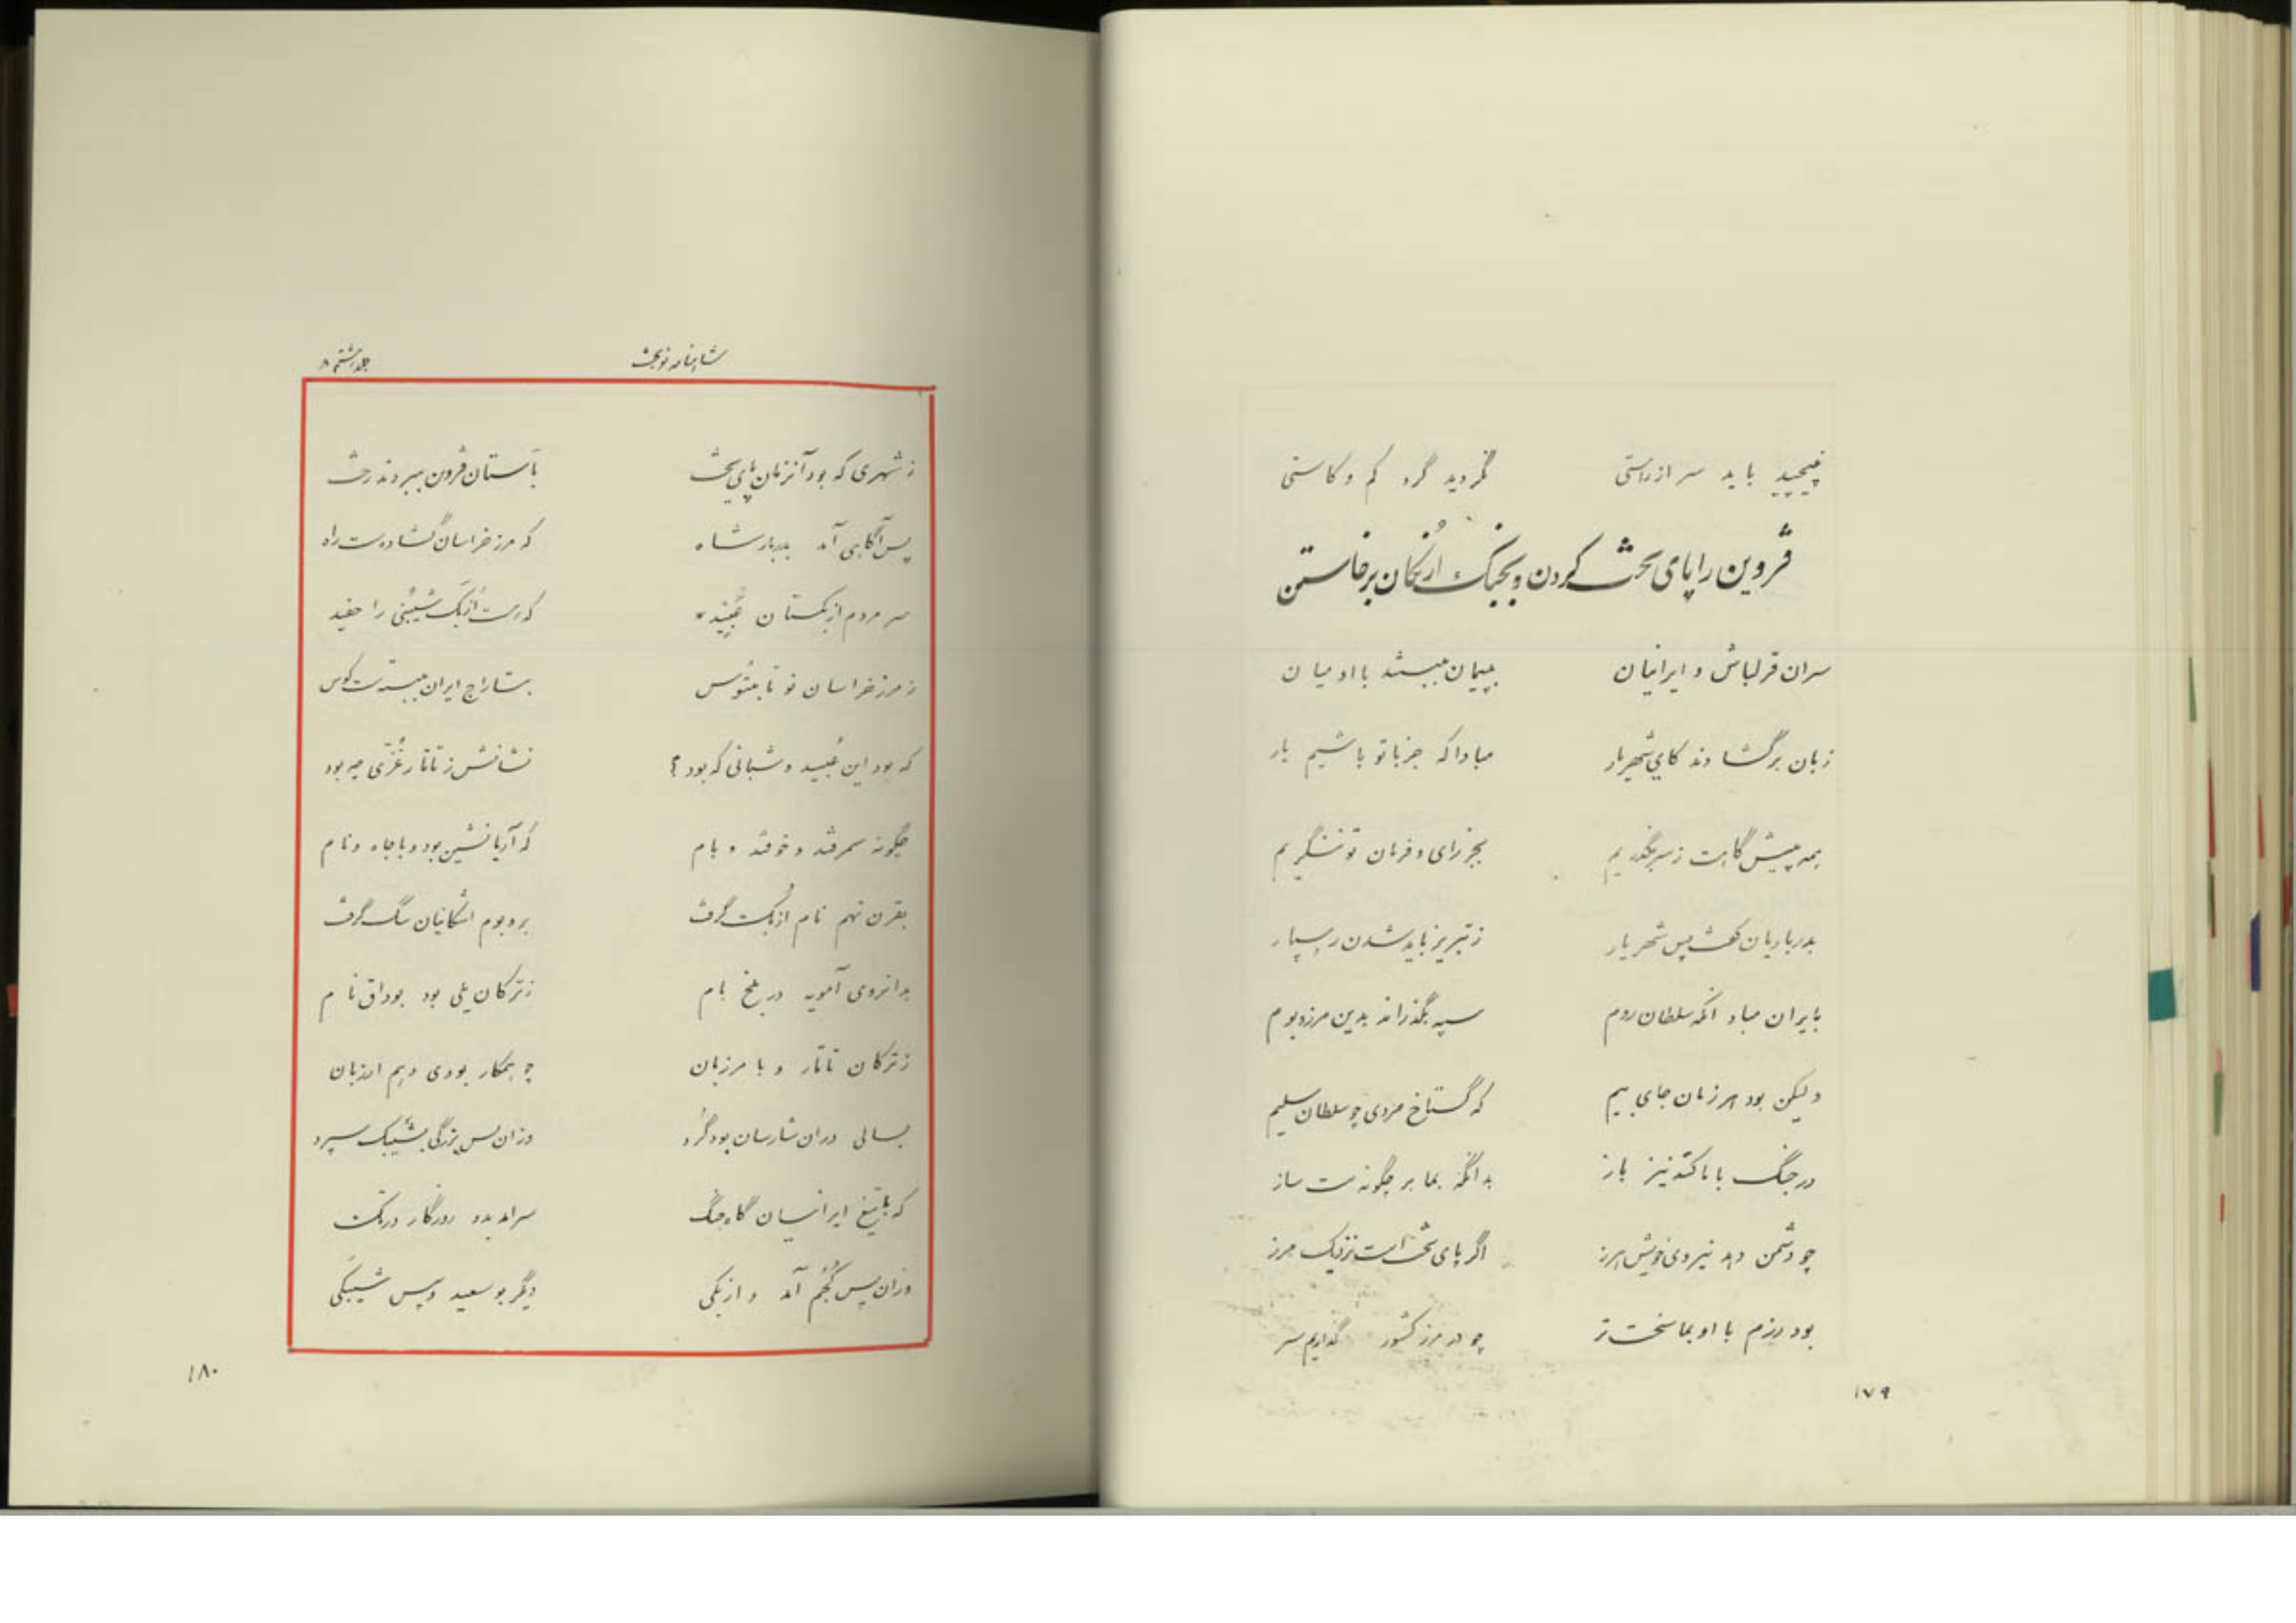 نپیچید باید سر از راستی نگردید گرد کم و کاستی
قزوین را پای تخت کردن و بجنگ ازبکان برخاستن
سران قزلباش و ایرانیان بپیمان ببستند با او میان
زبان برگشادند کای شهریار مباداکه جز با تو باشیم یار
همه پیش گاهت ز سر بگذریم بجز رای و فرمان تو ننگریم
بدرباریان گفت پس شهریار ز تبریز باید شدن رهسپار
بایران مباد آنکه سلطان روم سپه بگذراند بدین مرز و بوم
ولیکن بود هر زمان جای بیم که گستاخ مردی چو سلطان سلیم
در جنگ با ما کند نیز باز بدانگه بما بر چگونه‌ست ساز
چو دشمن دهد نیروی خویش هرز اگر پای تخت است نزدیک مرز
بود رزم با او بما سخت‌تر چو در مرز کشور گذاریم سر
۱۷۹
شاهنامه نوبخت جلد هشتم ۸
ز شهری که بود آنزمان پای تخت بآستان قزوین ببردند رخت
پس آگاهی آمد بدربار شاه که مرز خراسان گشاده‌ست راه
سر مردم ازبکستان عبید * که هست ازبک شیبنی را حفید
ز مرز خراسان نو تا بتوس بتاراج ایران ببسته‌ست کوس
که بود این عبید و شبانی که بود ؟ نشانش ز تاتار غزی چه بود
چگونه سمرقند و خوقند و بام که آریا نشین بود و با جاه و نام
بقرن نهم نام ازبک گرفت برو بوم اشکانیان سگ گرفت
بدانروی آمویه در بلخ بام ز ترکان یلی بود بوداق نام
ز ترکان تاتار و با مرزبان چو همکار بودی و هم ارزبان
بسالی دران شارسان بود گرد وزان پس بزرگی بشیبک سپرد
که با تیغ ایرانیان گاه جنگ سرامد بدو روزگار درنگ
وزان پس کجم آمد و ازبکی دیگر بو سعید و پس شیبکی
۱۸۰